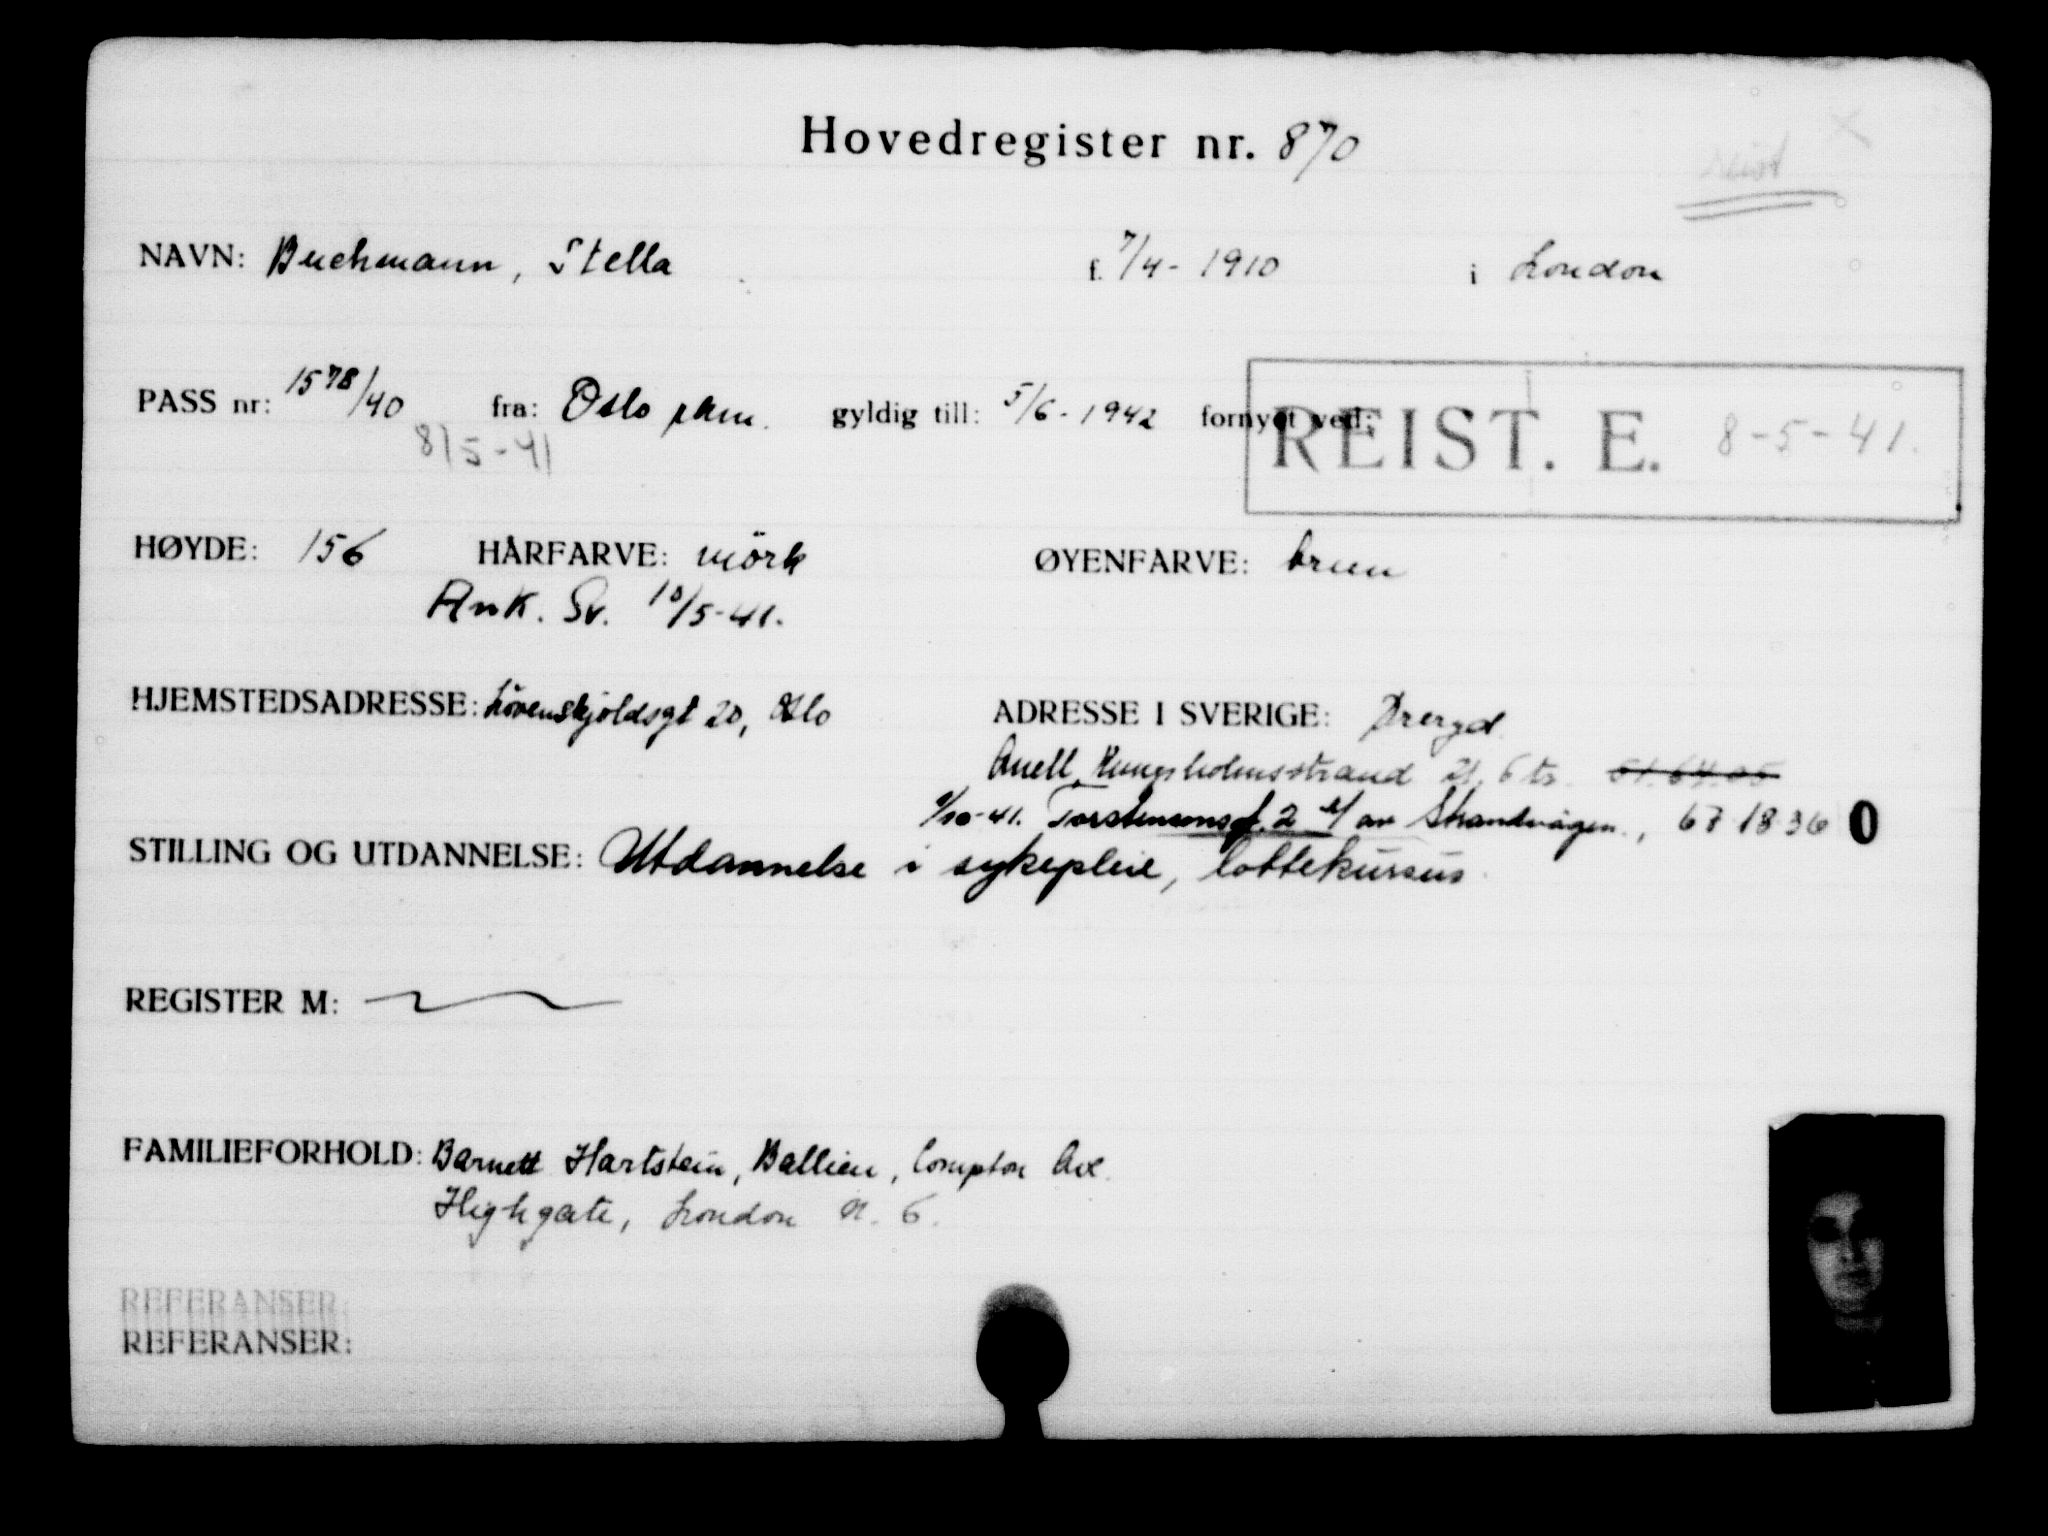 Hovedregister nr. 870
Reist
NAVN: Buchmann, Stella f. 7/4 - 1910 i London
PASS nr: 1578/40 fra: Oslo gyldig till: 5/6 - 1942 fornyet ved:
REIST. E. 8-5-41.
8/5-41
HØYDE: 156 HÅRFARVE: mörk ØYENFARVE: brun
Ank. Sv. 10/5-41.
HJEMSTEDSADRESSE: Lövenskjoldsgt 20, Oslo ADRESSE I SVERIGE:
Kungsholmsstrand 6 tr. 51.64.05
/10-41. Torstensonsg. 2 av Strandvägen, 67 18 36 0
STILLING OG UTDANNELSE: Utdannelse i sykepleie, lottekursus
REGISTER M:
FAMILIEFORHOLD: Barnett Hartstein, Compton Ave.
Highgate, London N. 6.
REFERANSER:
REFERANSER: